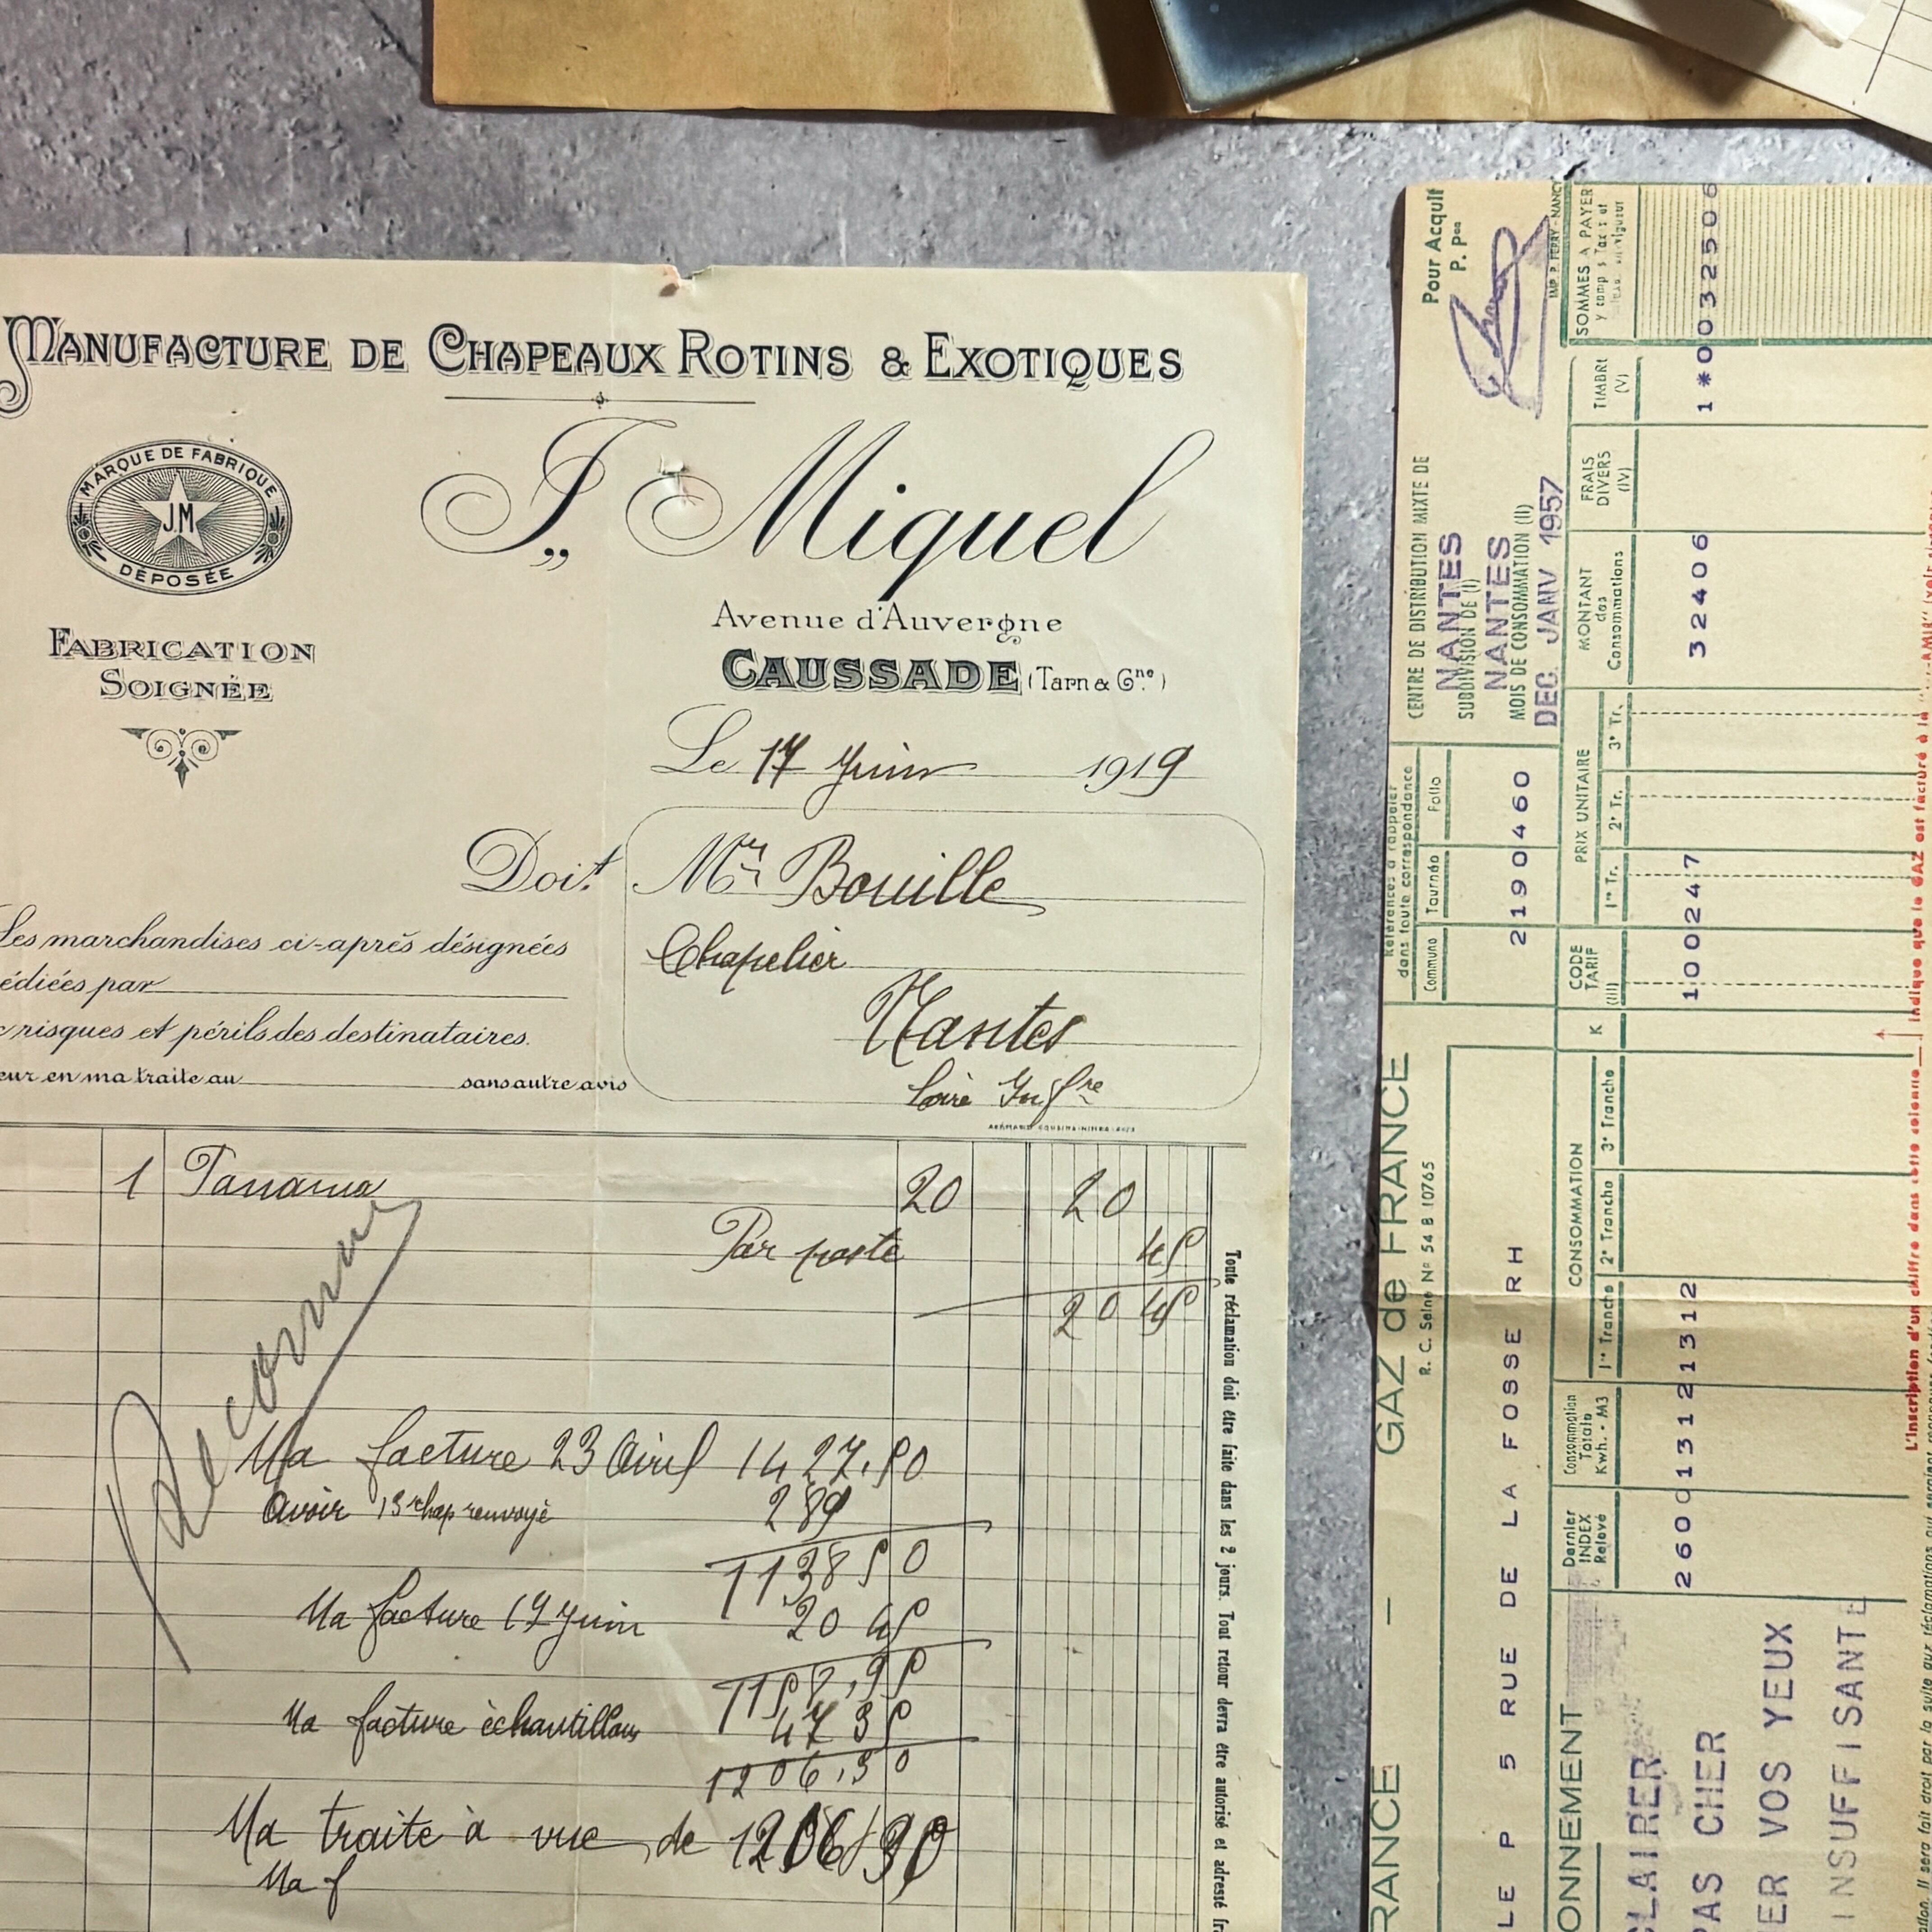 MANUFACTURE DE CHAPEAUX ROTINS & EXOTIQUES
MARQUE DE FABRIQUE
J.M
DÉPOSÉE
J,, Miquel
FABRICATION
SOIGNÉE
Avenue d'Auvergne
CAUSSADE (Tarn & Gne)
Le 17 Juin 1919
Doit Mr Bouille
Chapelier
Nantes
Loire Infre
Les marchandises ci-après désignées
édiées par
risques et périls des destinataires.
eur en ma traite au sans autre avis
1 Panama 20 20
Par poste 45
20 45
Ma facture 23 Avril 1427.50
Avoir 13 chap renvoyé 289
1138 50
Ma facture 17 Juin 20 45
1158,95
Ma facture échantillons 47 35
1206,30
Ma traite à vue de 1206,30
Ma f
Toute réclamation doit être faite dans les 2 jours. Tout retour devra être autorisé et adressé
Pour Acquit
P. Pon
IMP. P. FERRY - NANCY
CENTRE DE DISTRIBUTION MIXTE DE
NANTES
SUBDIVISION DE (I)
NANTES
MOIS DE CONSOMMATION (II)
DEC. JANV 1957
Références à rappeler
dans toute correspondance
Commune Tournée Folio
2190460
GAZ de FRANCE
R. C. Seine No 54 B 10765
RANCE
LE P 5 RUE DE LA FOSSE RH
Dernier INDEX Relevé
Consommation Totale Kwh. - M3
CONSOMMATION
1re Tranche 2e Tranche 3e Tranche
K
CODE TARIF (III)
PRIX UNITAIRE
1re Tr. 2e Tr. 3e Tr.
MONTANT des Consommations
FRAIS DIVERS (IV)
TIMBRE (V)
SOMMES A PAYER
y comp s Taxes et
2600 1312 1312 1 00247 32406 1*0032506
ONNEMENT
CLAIRER
PAS CHER
ER VOS YEUX
INSUFFISANTE
L'inscription d'un chiffre dans cette colonne indique que le GAZ est facturé à la